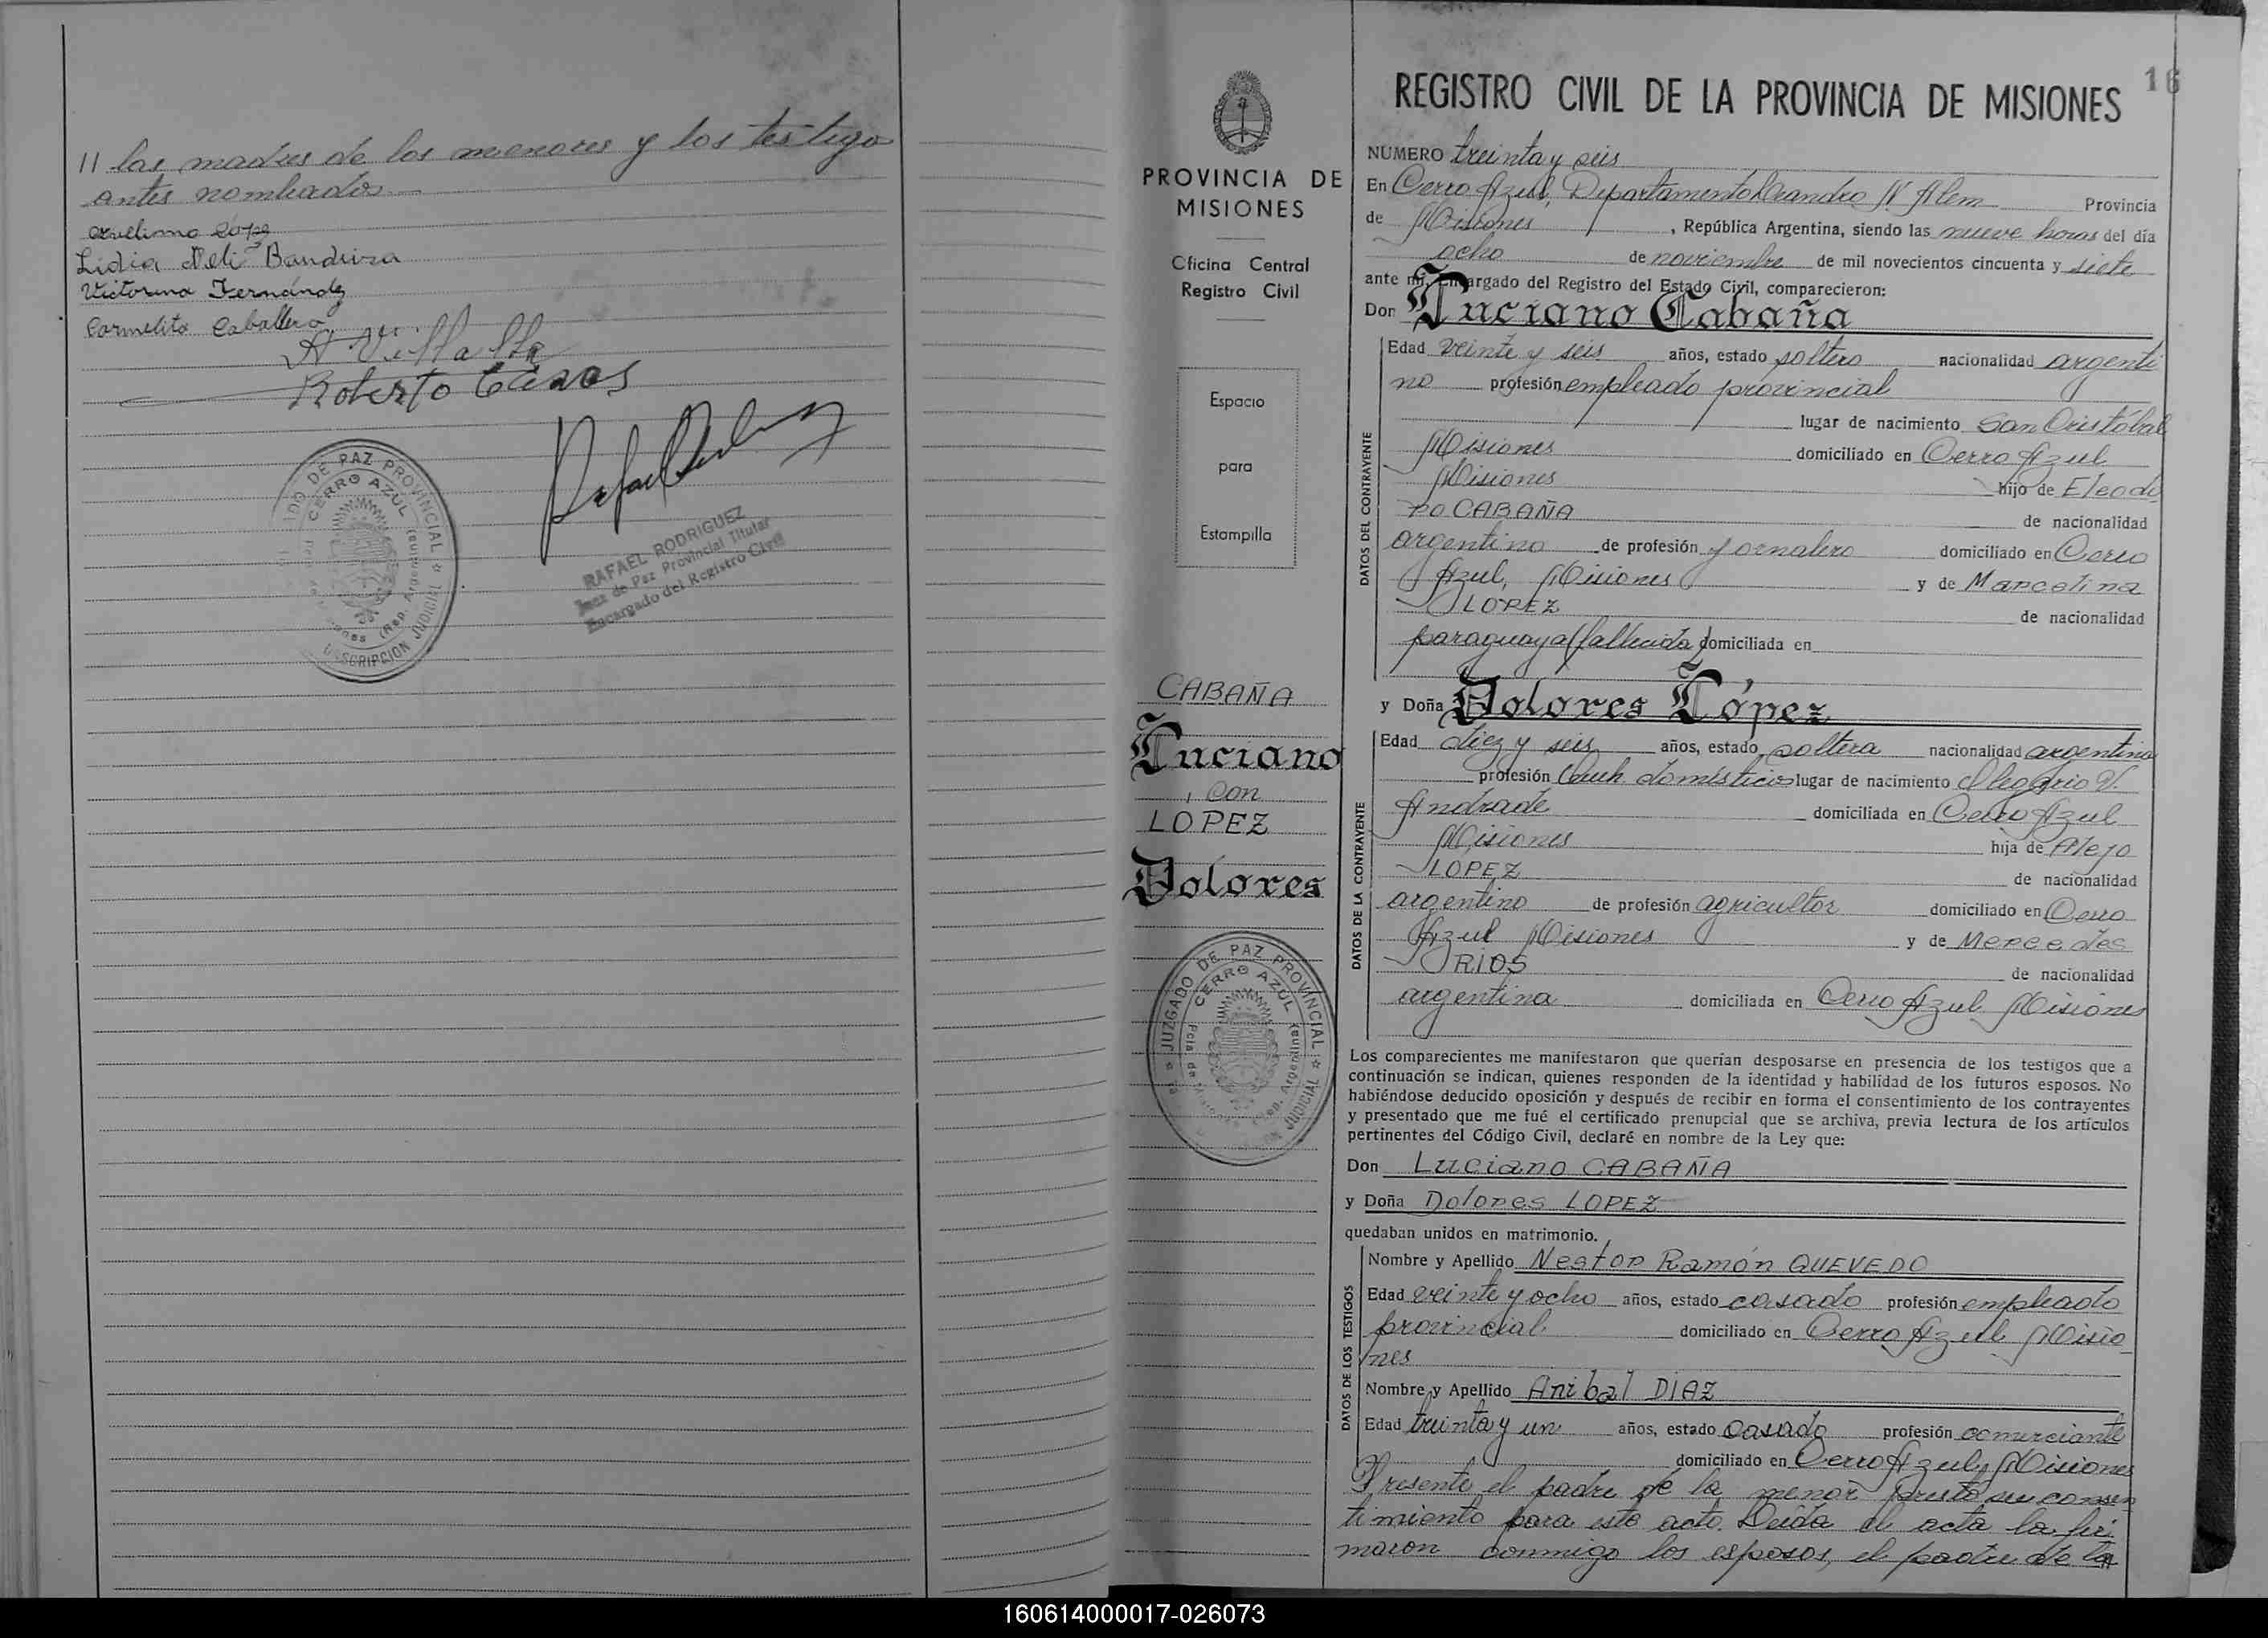 // las madres de los menores y los testigo
antes nombrados.
Avelino López
Lidia Neli Bandeira
Victorina Fernández
Carmelita Caballero
A Villalba
Roberto
RAFAEL RODRIGUEZ
Juez de Paz Provincial Titular
Encargado del Registro Civil
PROVINCIA DE
MISIONES
Oficina Central
Registro Civil
Espacio
para
Estampilla
CABAÑA
Luciano
con
LOPEZ
Dolores
JUZGADO DE PAZ PROVINCIAL
CERRO AZUL
16
REGISTRO CIVIL DE LA PROVINCIA DE MISIONES
NUMERO treinta y seis
En Cerro Azul, Departamento Leandro N. Alem Provincia
de Misiones, República Argentina, siendo las nueve horas del día
ocho de noviembre de mil novecientos cincuenta y siete
ante mí, Encargado del Registro del Estado Civil, comparecieron:
Don Luciano Cabaña
Edad veinte y seis años, estado soltero nacionalidad argenti
no profesión empleado provincial
lugar de nacimiento San Cristóbal
Misiones domiciliado en Cerro Azul
Misiones hijo de Eleodo
ro CABAÑA de nacionalidad
argentino de profesión jornalero domiciliado en Cerro
Azul, Misiones y de Marcelina
LOPEZ de nacionalidad
paraguaya (fallecida) domiciliada en
DATOS DEL CONTRAYENTE
y Doña Dolores López
Edad diez y seis años, estado soltera nacionalidad argentina
profesión Queh. domésticos lugar de nacimiento Olegario V.
Andrade domiciliada en Cerro Azul
Misiones hija de Alejo
LOPEZ de nacionalidad
argentino de profesión agricultor domiciliado en Cerro
Azul Misiones y de Mercedes
RIOS de nacionalidad
argentina domiciliada en Cerro Azul Misiones
DATOS DE LA CONTRAYENTE
Los comparecientes me manifestaron que querían desposarse en presencia de los testigos que a
continuación se indican, quienes responden de la identidad y habilidad de los futuros esposos. No
habiéndose deducido oposición y después de recibir en forma el consentimiento de los contrayentes
y presentado que me fué el certificado prenupcial que se archiva, previa lectura de los artículos
pertinentes del Código Civil, declaré en nombre de la Ley que:
Don Luciano CABAÑA
y Doña Dolores LOPEZ
quedaban unidos en matrimonio.
Nombre y Apellido Nestor Ramón QUEVEDO
Edad veinte y ocho años, estado casado profesión empleado
provincial domiciliado en Cerro Azul Misio
nes
Nombre y Apellido Anibal DIAZ
Edad treinta y un años, estado casado profesión comerciante
domiciliado en Cerro Azul, Misiones
DATOS DE LOS TESTIGOS
Presente el padre de la menor prestó su consen
timiento para este acto. Leída el acta la fir
maron conmigo los esposos, el padre de la
160614000017-026073